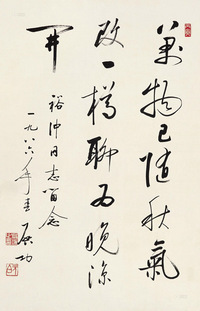 萬物已隨秋氣
改一樽聊為晚涼
開
裕沖同志留念
一九八六年夏 启功